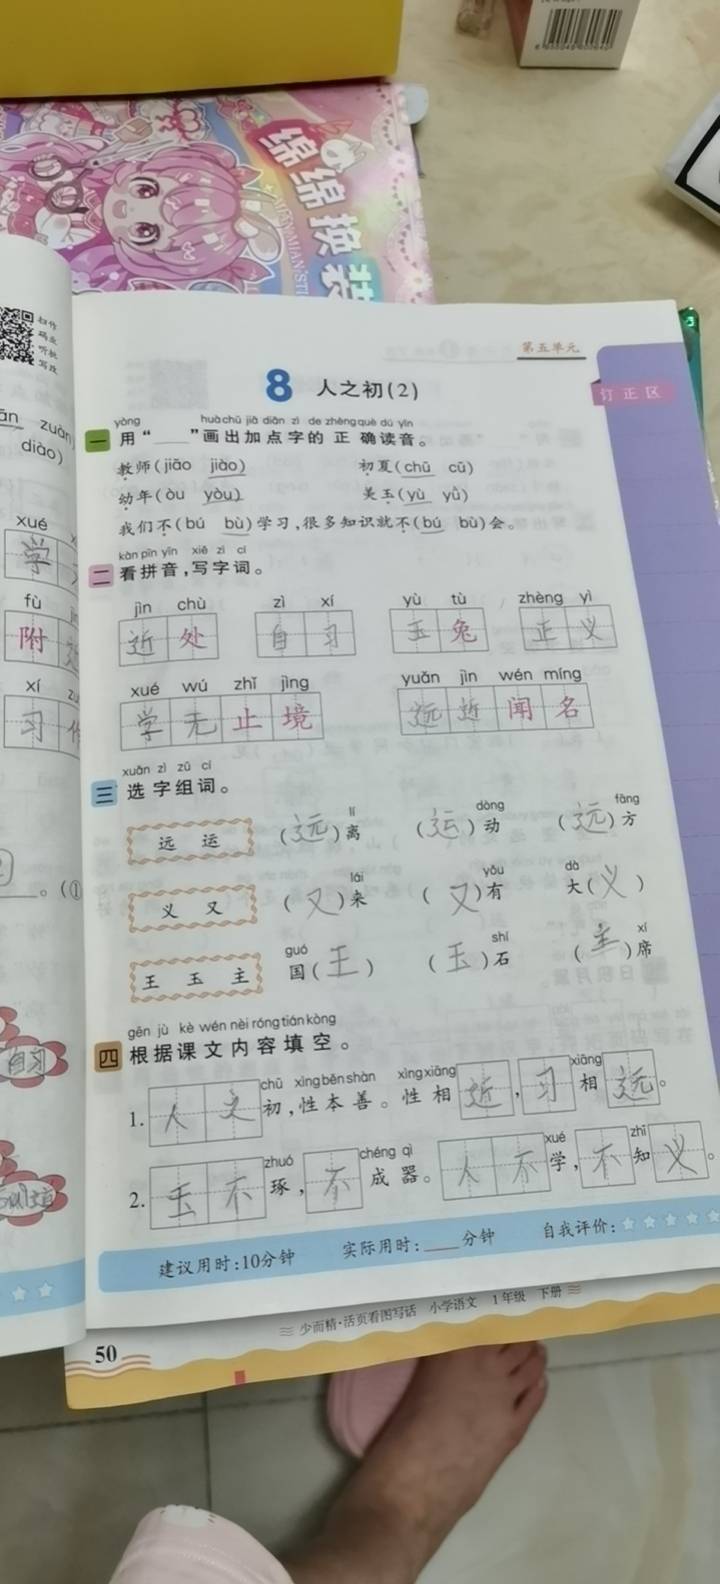 绵绵换装
MIAN MIAN
扫作
码业
听批
写改
第五单元
订正区
8 人之初(2)
yòng huà chū jiā diǎn zì de zhèng què dú yīn
一 用“____”画出加点字的正确读音。
教师(jiāo jiào) 初夏(chū cū)
幼年(òu yòu) 美玉(yù yǜ)
我们不(bú bù)学习,很多知识就不(bú bù)会。
kàn pīn yīn xiě zì cí
二 看拼音,写字词。
jìn chù zì xí yù tù zhèng yì
近处 自习 玉兔 正义
xué wú zhǐ jìng yuǎn jìn wén míng
学无止境 远近闻名
xuǎn zì zǔ cí
三 选字组词。
lí dòng fāng
远 运 (远)离 (运)动 (远)方
lái yǒu dà
义 又 (又)来 (又)有 大(义)
guó shí xí
王 玉 主 国(王) (玉)石 (主)席
gēn jù kè wén nèi róng tián kòng
四 根据课文内容填空。
chū xìng běn shàn xìng xiāng xiāng
1. 人之初,性本善。性相近,习相远。
zhuó chéng qì xué zhī
2. 玉不琢,不成器。人不学,不知义。
建议用时:10分钟 实际用时:____分钟 自我评价:
少而精·活页看图写话 小学语文 1年级 下册
50
zuàn
diào)
xué
学
fù
附
xí
习
。(①
自习